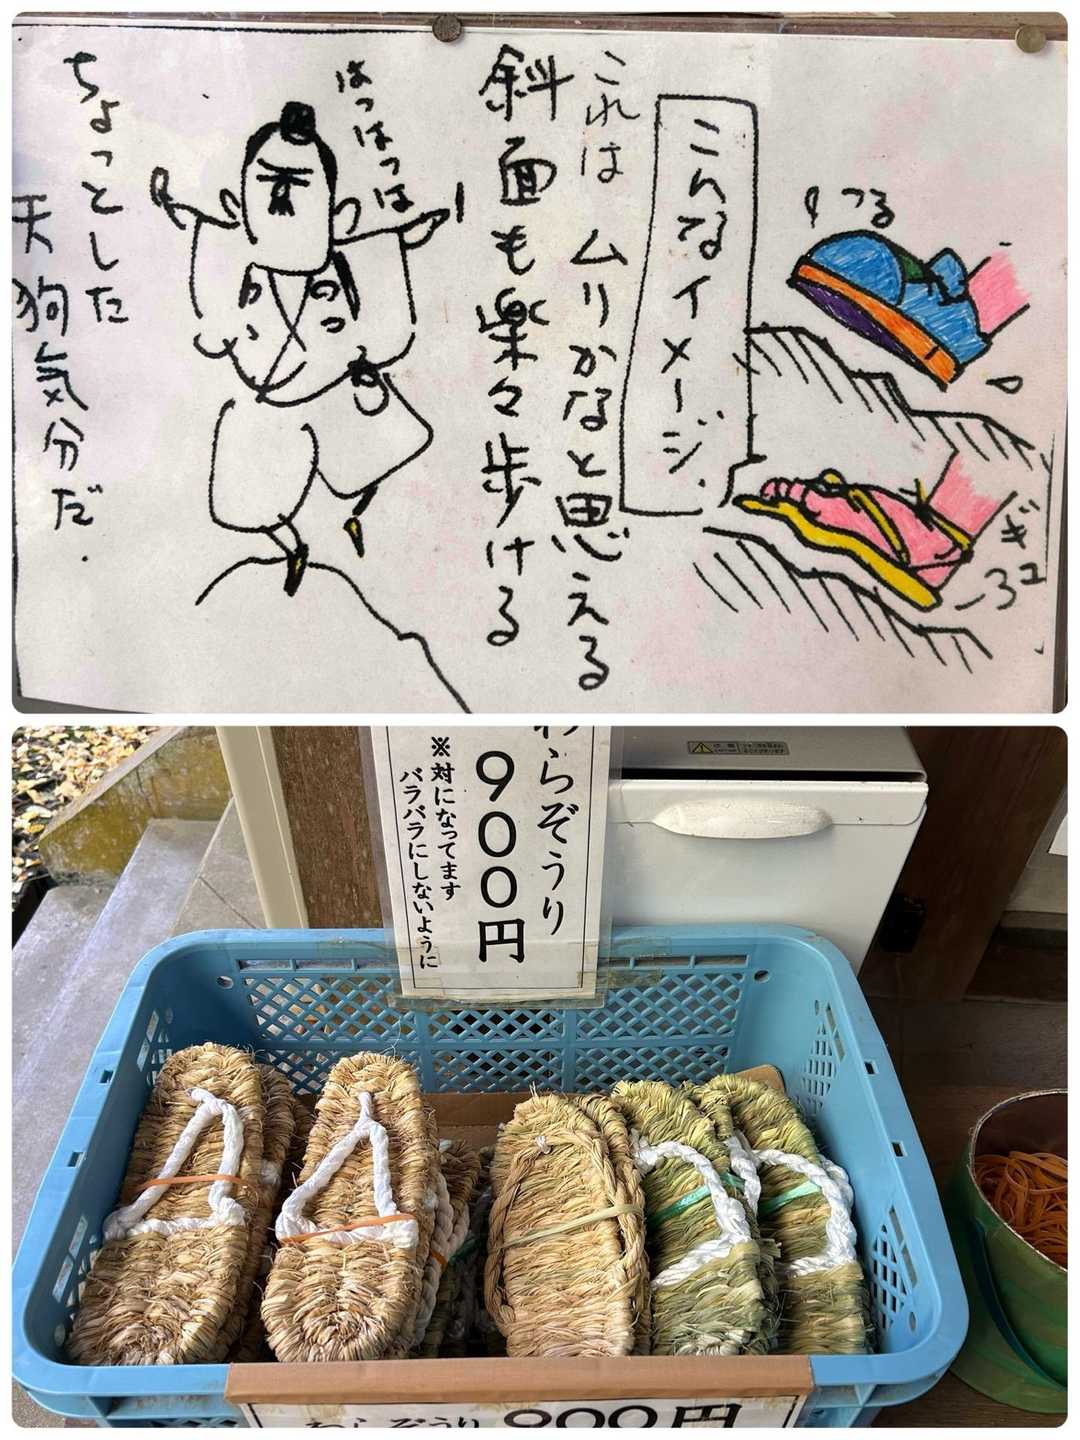 こんなイメージ
つるっ
ギュ
ーっ
これは ムリかなと思える
斜面も楽々歩ける
はっはっは
ちょっとした
天狗気分だ.
わらぞうり
900円
※対になってます
バラバラにしないように
わらぞうり 900円